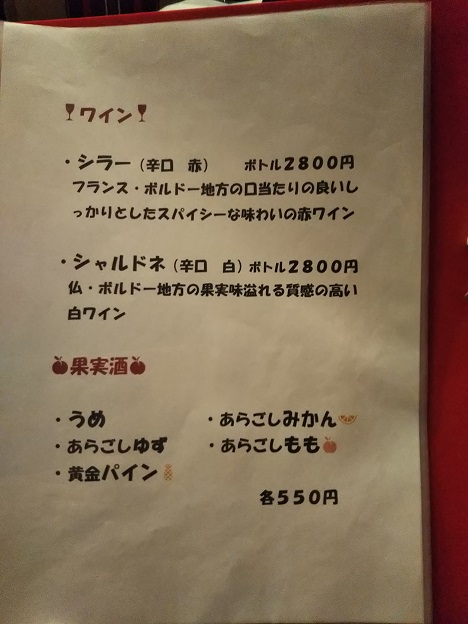 ワイン
・シラー（辛口　赤）　ボトル２８００円
フランス・ボルドー地方の口当たりの良いし
っかりとしたスパイシーな味わいの赤ワイン
・シャルドネ（辛口　白）ボトル２８００円
仏・ボルドー地方の果実味溢れる質感の高い
白ワイン
果実酒
・うめ　・あらごしみかん
・あらごしゆず　・あらごしもも
・黄金パイン
各５５０円